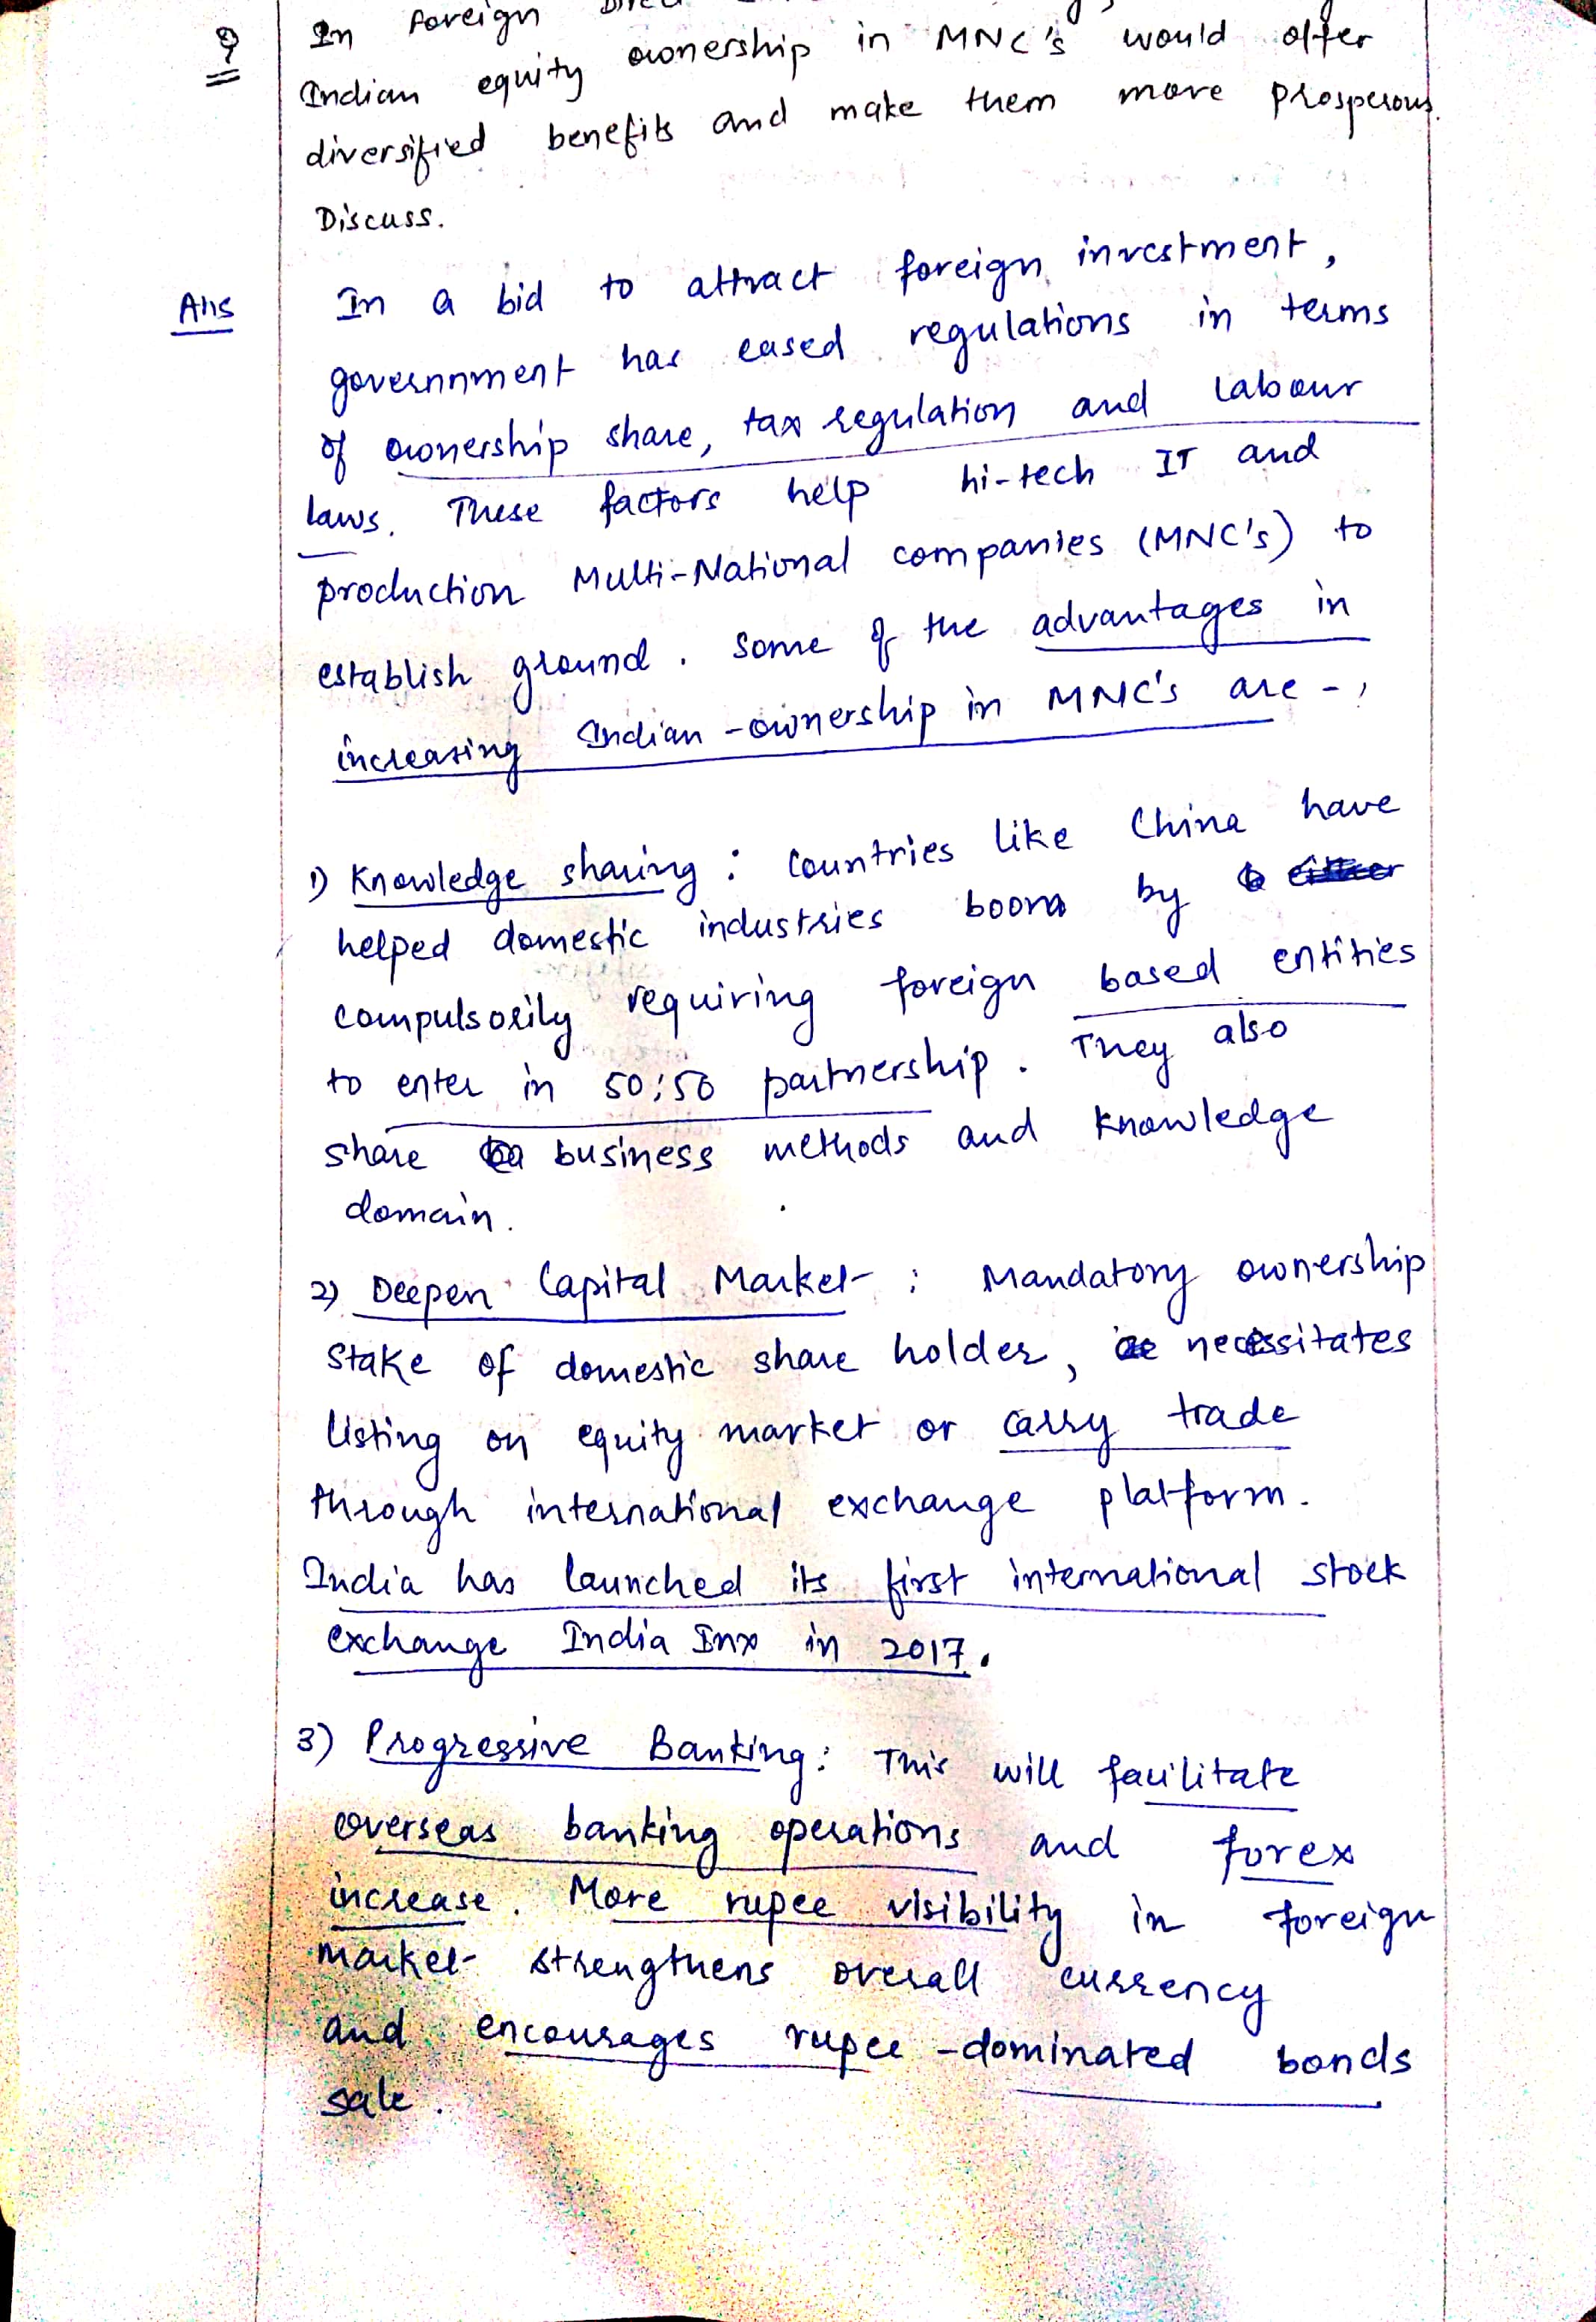 Q In foreign
Indian equity ownership in MNC's would offer
diversified benefits and make them more prosperous.
Discuss.
Ans In a bid to attract foreign investment,
governnment has eased regulations in terms
of ownership share, tax regulation and labour
laws. These factors help hi-tech IT and
production Multi-National companies (MNC's) to
establish ground. Some of the advantages in
increasing Indian-ownership in MNC's are -
1) Knowledge sharing : Countries like China have
helped domestic industries boom by
compulsorily requiring foreign based entities
to enter in 50:50 partnership. They also
share business methods and knowledge
domain.
2) Deepen Capital Market : Mandatory ownership
stake of domestic share holder, necessitates
listing on equity market or carry trade
through international exchange platform.
India has launched its first international stock
exchange India Inx in 2017.
3) Progressive Banking: This will facilitate
overseas banking operations and forex
increase. More rupee visibility in foreign
market strengthens overall currency
and encourages rupee-dominated bonds
sale.